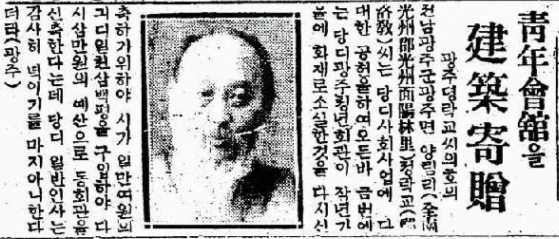 靑年會舘을
建築寄贈
광주뎡락교씨의호의
전남광주군광주면 양림리(全南
光州郡光州面陽林里)뎡락교(鄭
洛敎)씨는 당디사회사업에 다
대한 공헌을하여오든바 금번에
는 당디광주청년회관이 작년가
을에 화재로소실한것을 다시신
축하기위하야 시가 일만여원의
긔디일천삼백평을 구입하야 다
시삼만원의 예산으로 동회관을
신축한다는데 당디 일반인사는
감사히 넉이기를 마지아니한다
더라(광주)